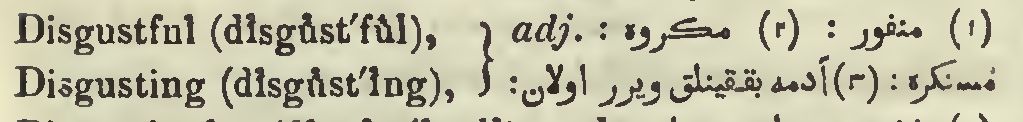 Disgustful (dĭsgŭst′fŭl), } adj. : (١) منفور : (٢) مكروه :
Disgusting (dĭsgŭst′ĭng), } مُستكره : (٣) آدمه بققينلق ويرر اولان: